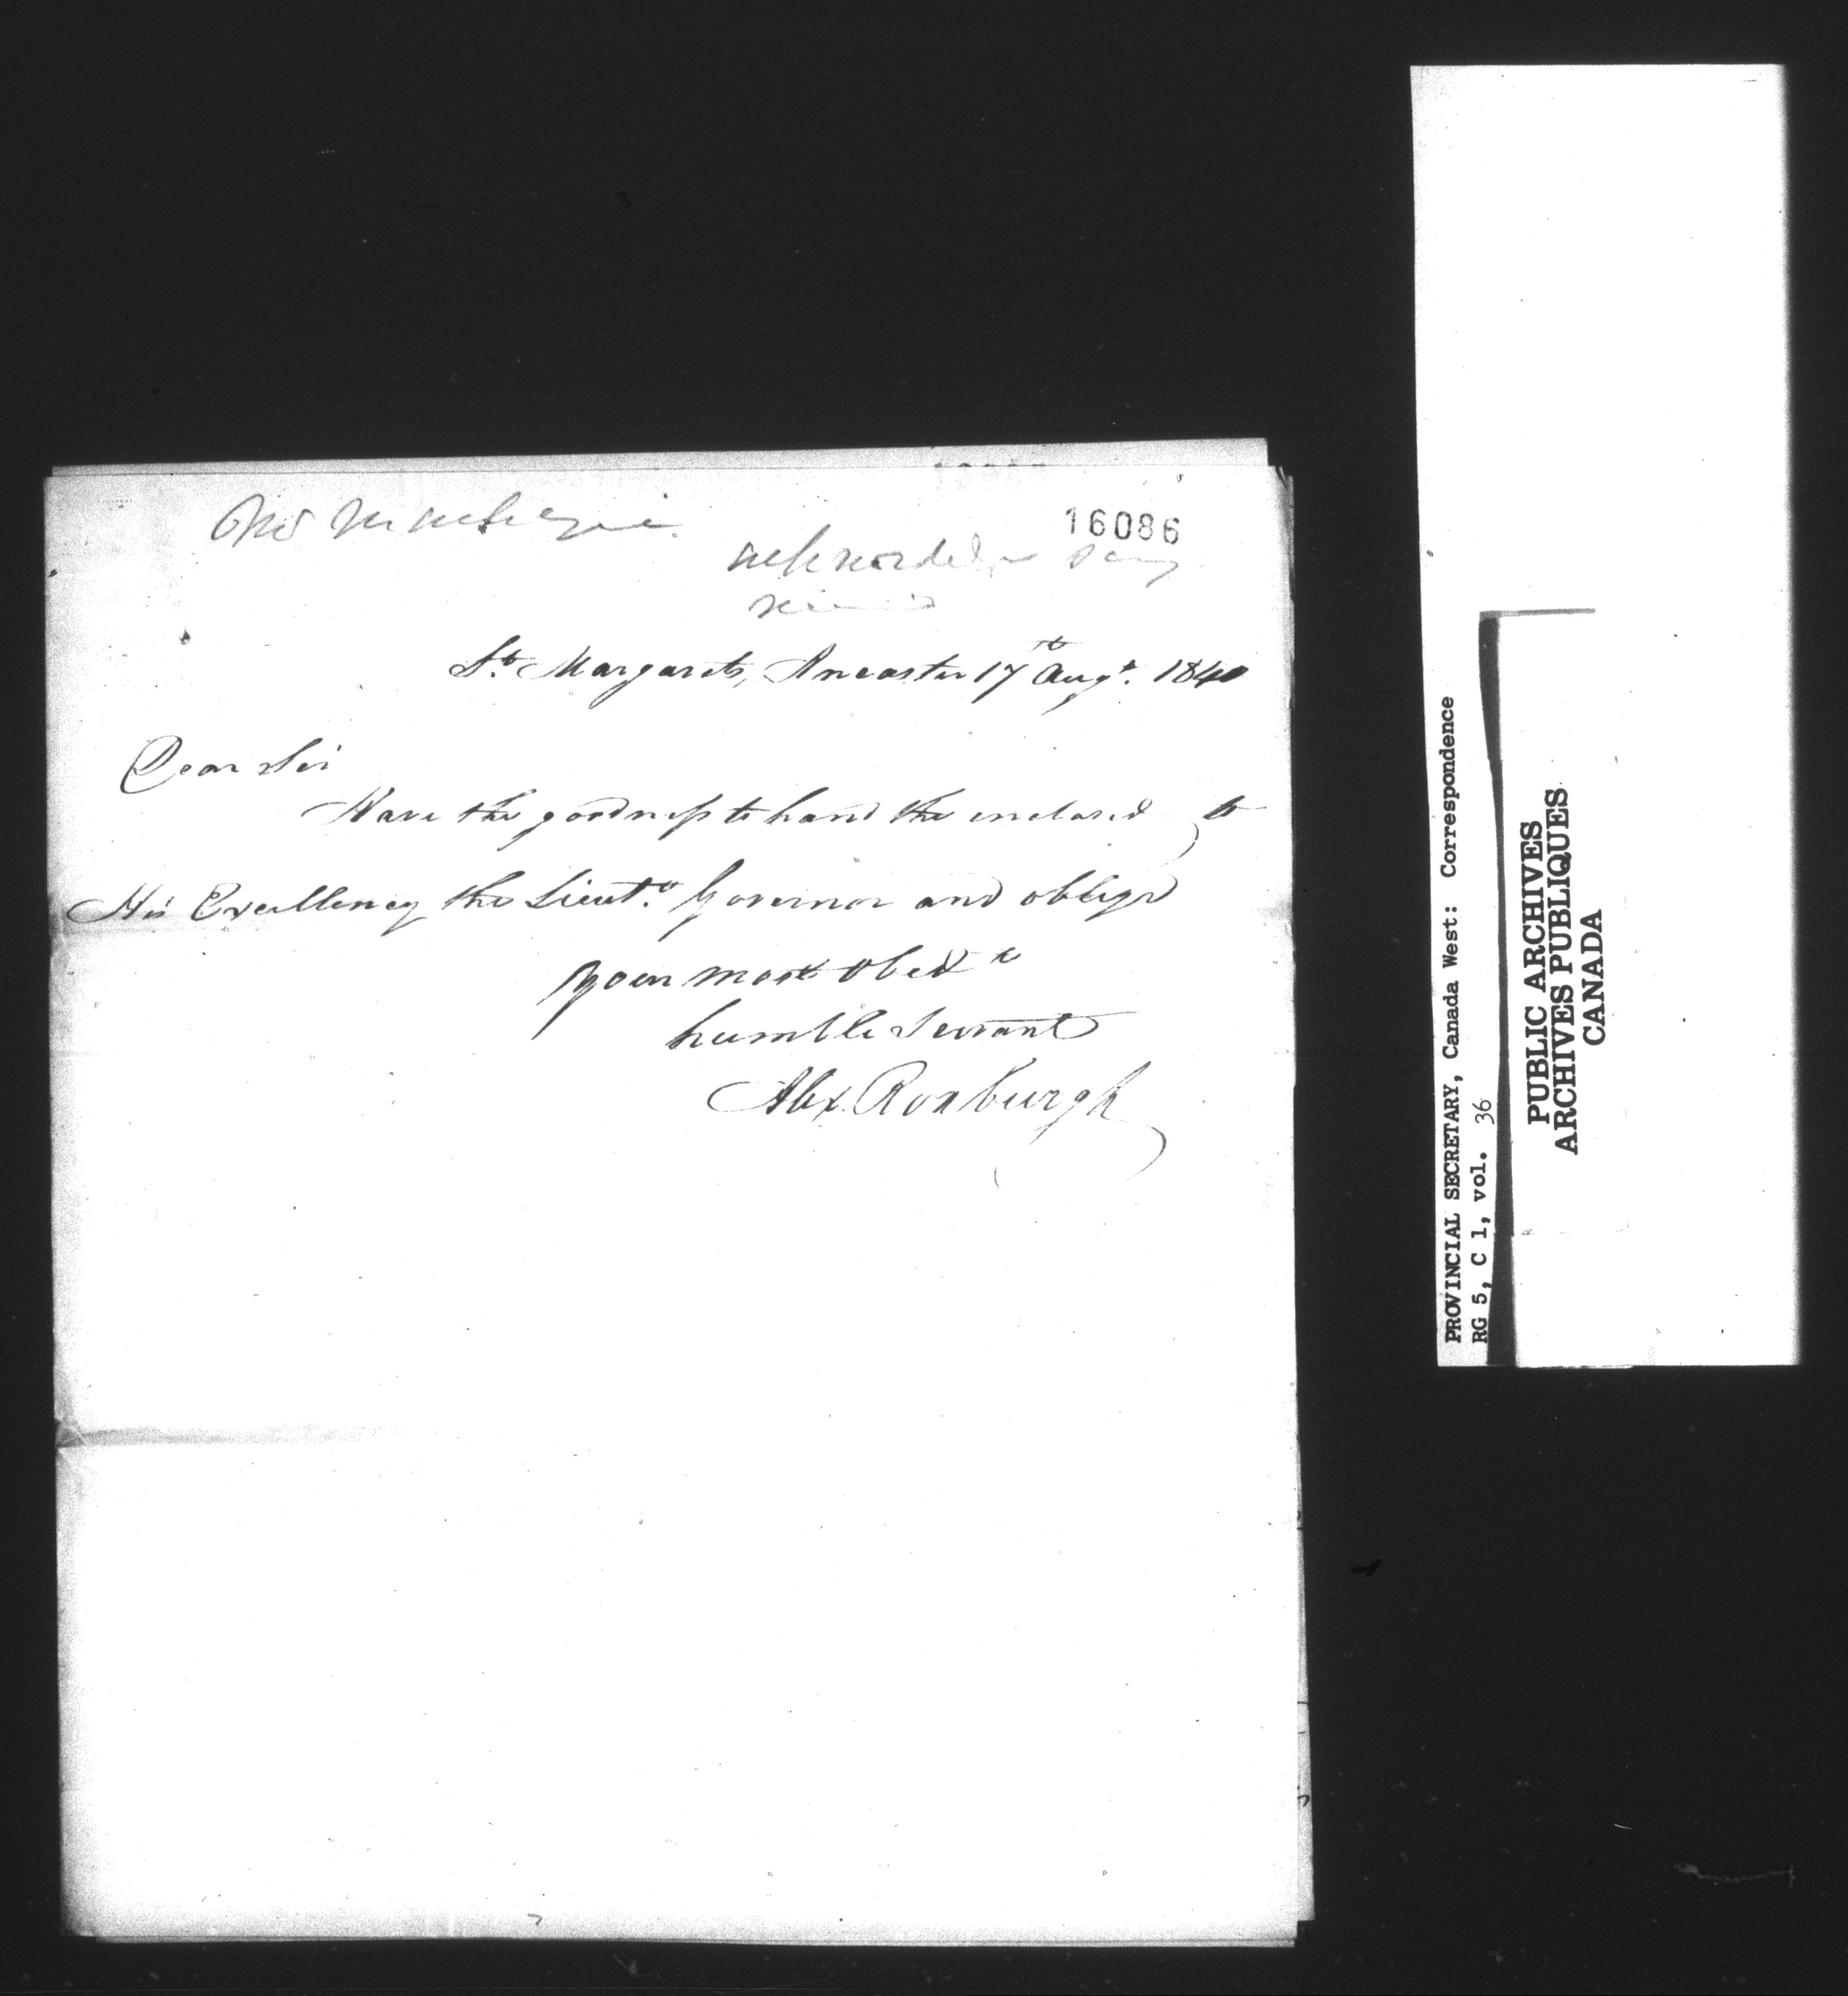 Mr Mackenzie
16086
acknowledge
St. Margarets, Ancaster 17th Augt. 1840
Dear Sir
Have the goodness to hand the enclosed to
His Excellency the Lieutt. Governor and oblige
your most Obedt
humble Servant
Alex. Roxburgh
PROVINCIAL SECRETARY, Canada West: Correspondence
RG 5, C 1, vol. 36
PUBLIC ARCHIVES
ARCHIVES PUBLIQUES
CANADA